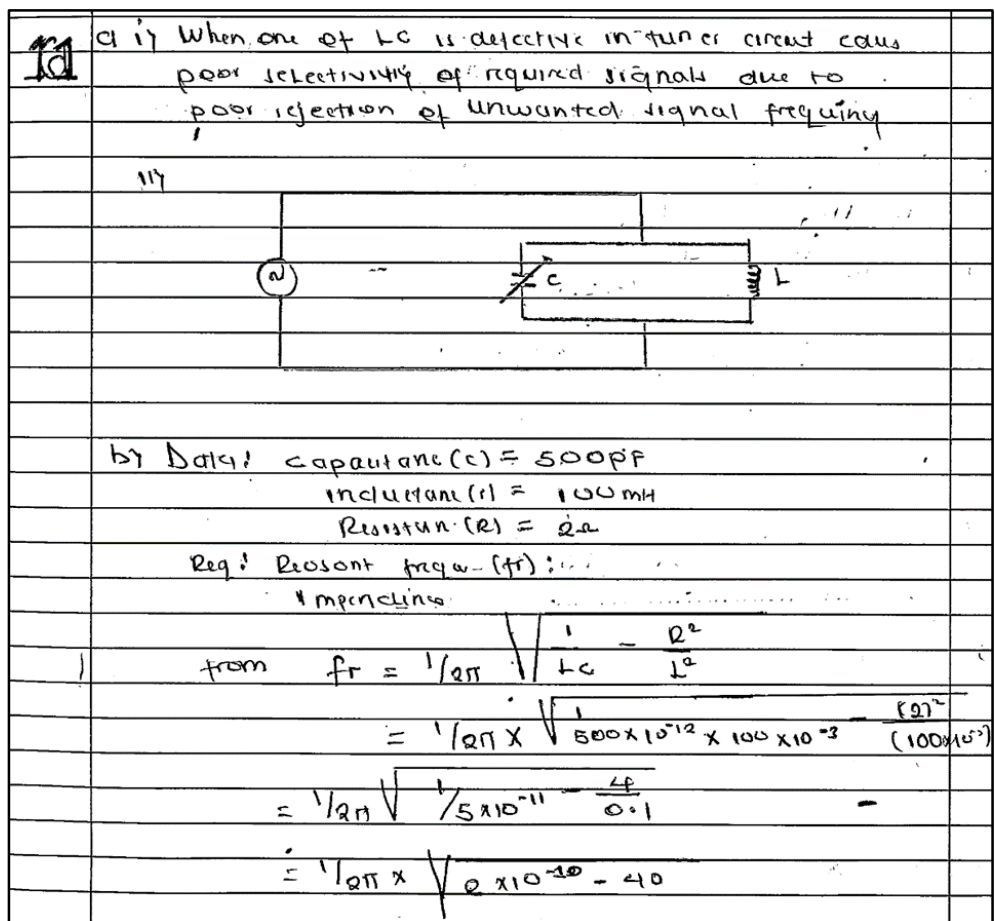 1d
a i) When one of LC is defective in tuner circut caus
poor selectivity of required signals due to
poor rejection of unwanted signal frequiny
ii)
C
L
b) Data: capacitanc (c) = 500pF
inductanc (l) = 100 mH
Resistan. (R) = 2Ω
Req: Reosont freqw- (fr):
from fr = 1/2π √ 1/LC - R²/L²
= 1/2π × √ 1/500 × 10⁻¹² × 100 × 10⁻³ - (2)²/(100×10⁻³)
= 1/2π √ 1/5×10⁻¹¹ - 4/0.1
= 1/2π × √ 2 ×10⁻¹⁰ - 40